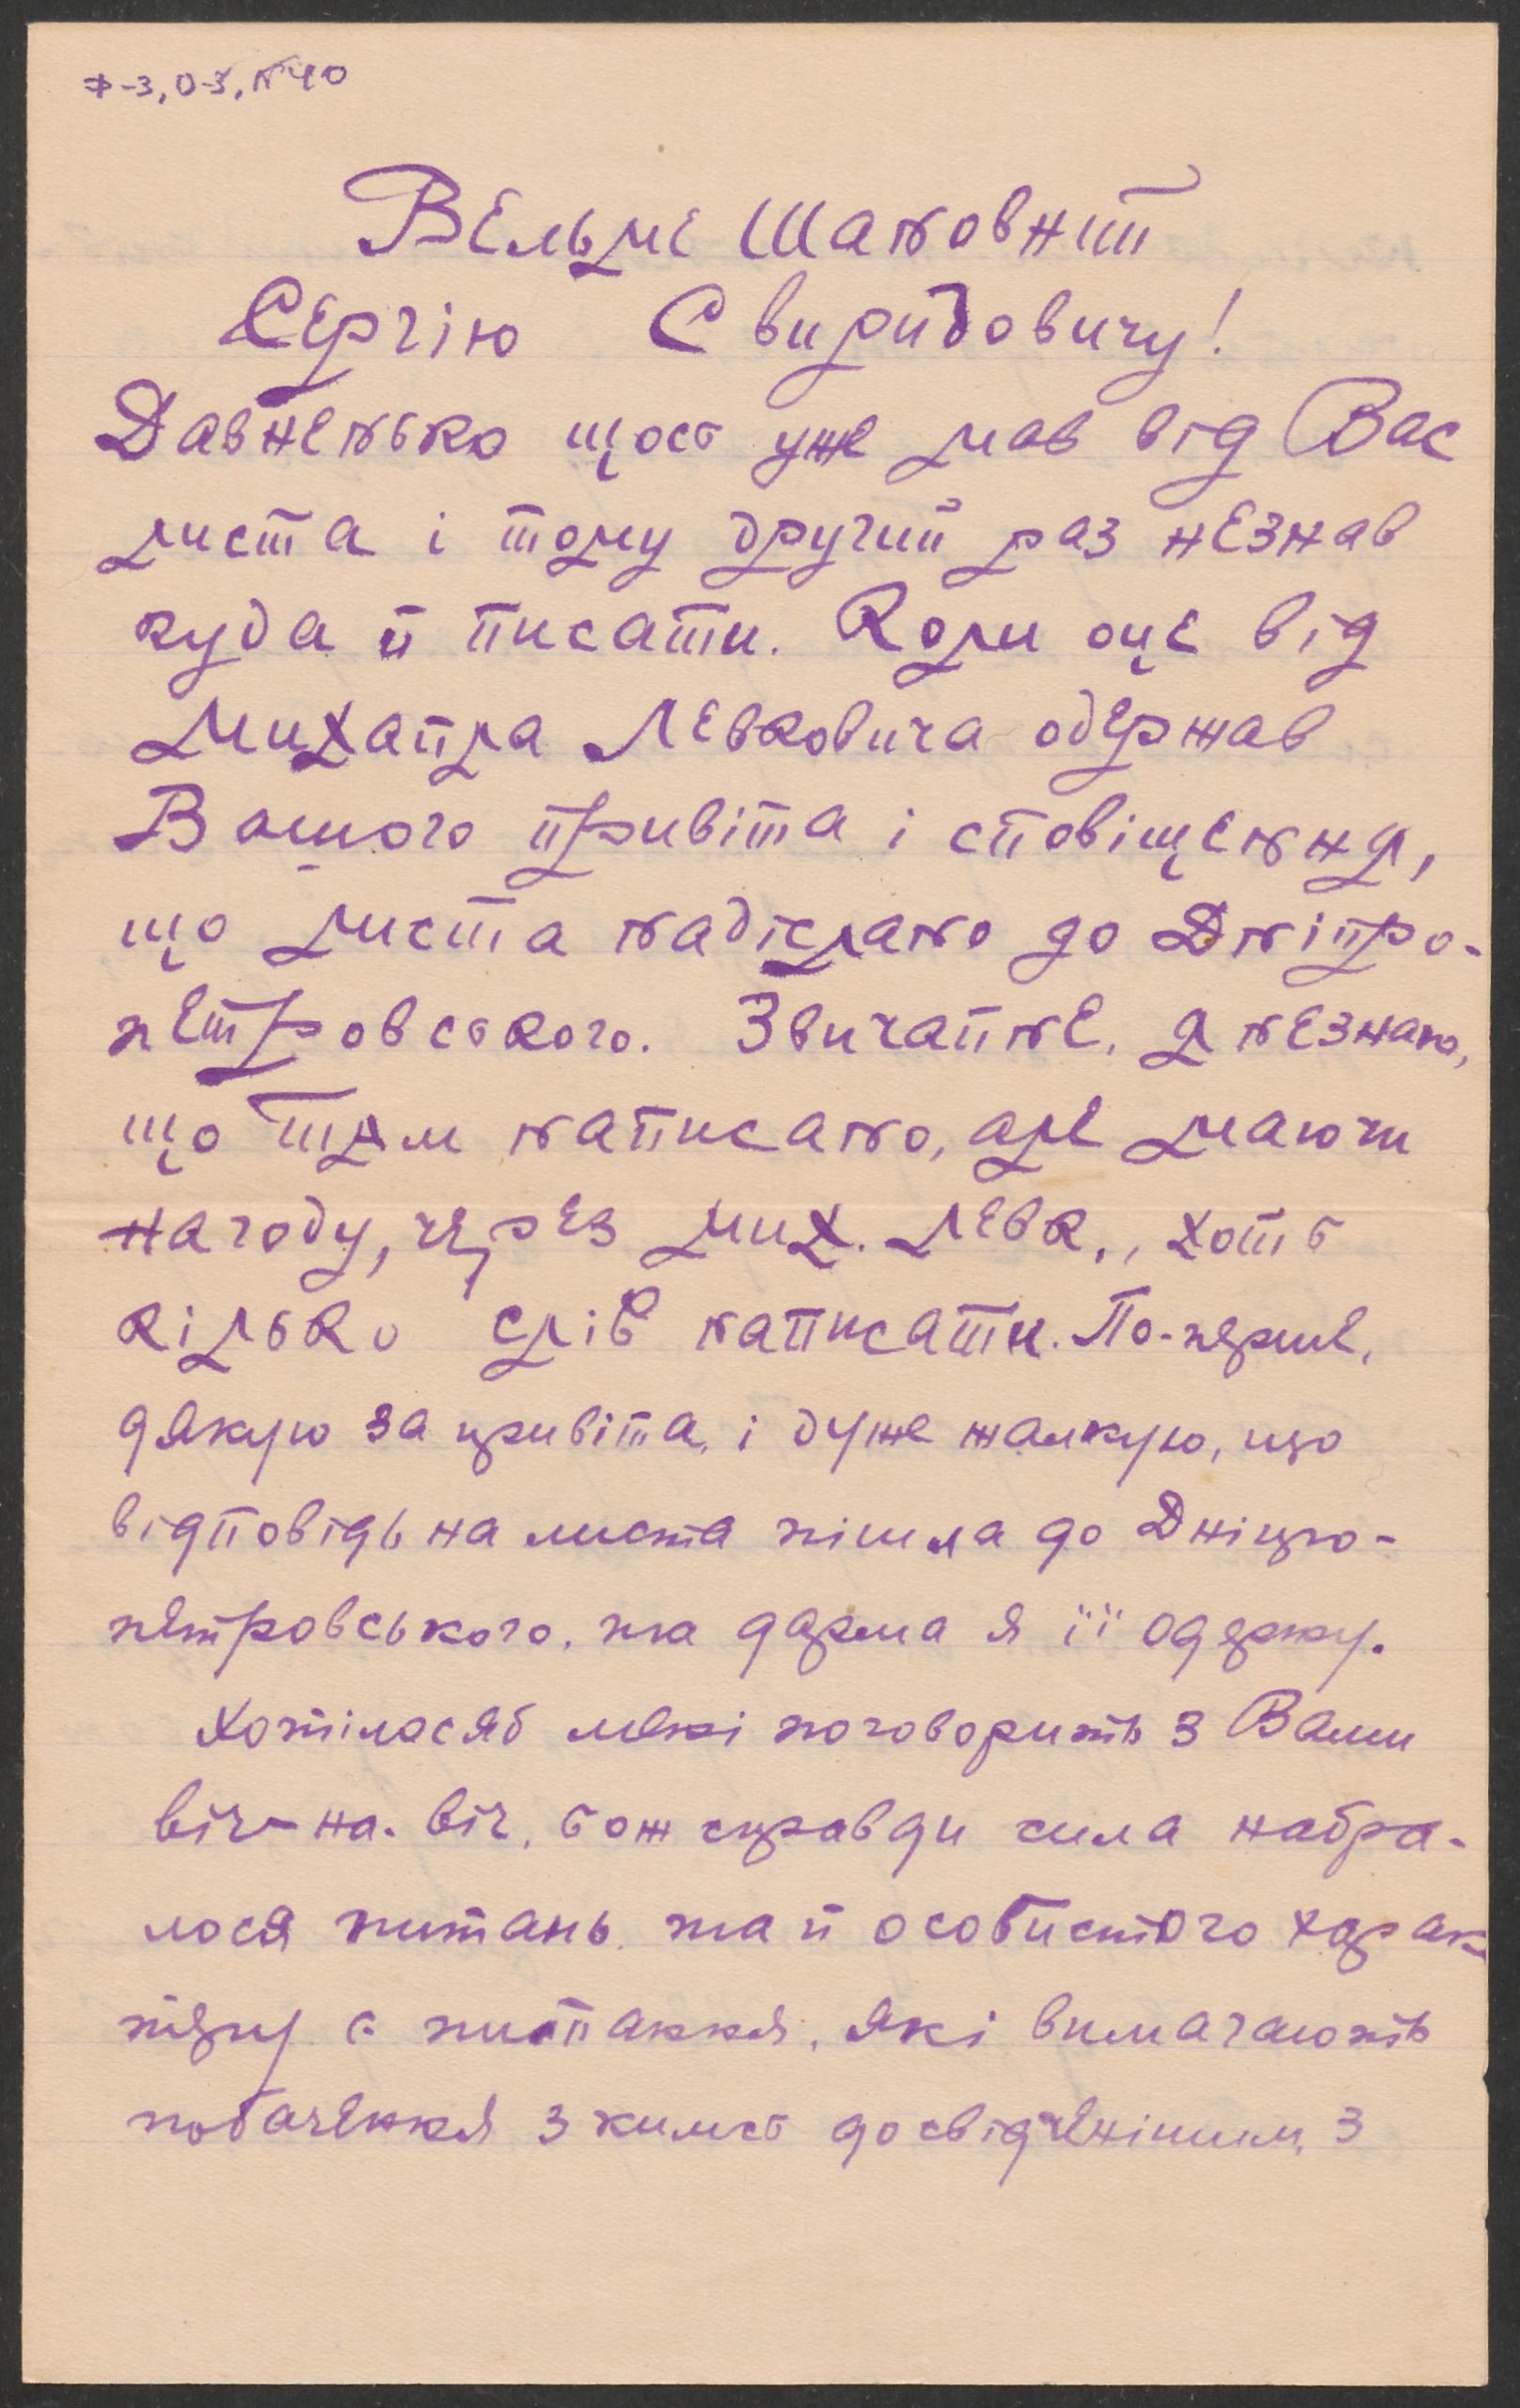 Ф-3, О-3, №40
Вельме Шановний
Сергію Свиридовичу!
Давненько щось уже мав від Вас
листа і тому другий раз незнав
куда й писати. Коли оце від
Михайла Левковича одержав
Вашого привіта і сповіщення,
що листа надіслано до Дніпро-
петровського. Звичайне, я незнаю,
що там написано, але маючи
нагоду, через Мих. Левк., хоть
кілько слів написати. По-перше,
дякую за привіта, і дуже жалкую, що
відповідь на листа пішла до Дніпро-
петровського, та дарма я її одержу.
Хотілосяб мені поговорить з Вами
віч-на-віч, бож справди сила набра-
лося питань, та й особистого харак
теру є питання, які вимагають
побачення з кимсь досвідченішим, з